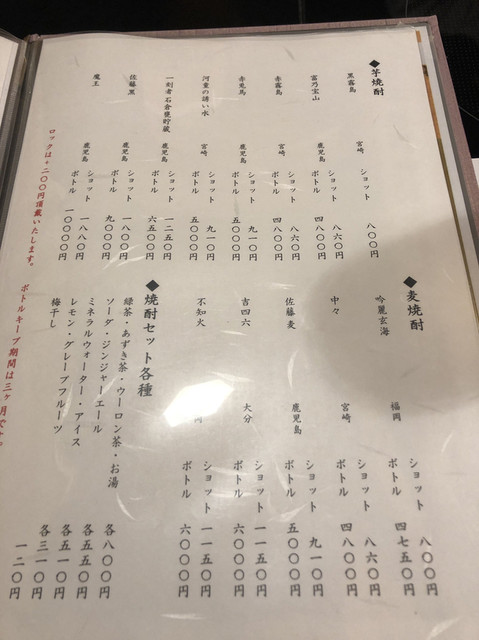 ◆芋焼酎
黒霧島 宮崎 ショット 八〇〇円
富乃宝山 鹿児島 ショット 八六〇円
ボトル 四八〇〇円
赤霧島 宮崎 ショット 八六〇円
ボトル 四八〇〇円
赤兎馬 鹿児島 ショット 九一〇円
ボトル 五〇〇〇円
河童の誘い水 宮崎 ショット 九一〇円
ボトル 五〇〇〇円
一刻者 石倉甕貯蔵 鹿児島 ショット 一二五〇円
ボトル 六五〇〇円
佐藤黒 鹿児島 ショット 一八〇〇円
ボトル 九〇〇〇円
魔王 鹿児島 ショット 一八八〇円
ボトル 一〇〇〇〇円
ロックは+二〇〇円頂戴いたします。
◆麦焼酎
吟麗玄海 福岡 ショット 八〇〇円
ボトル 四七五〇円
中々 宮崎 ショット 八六〇円
ボトル 四八〇〇円
佐藤麦 鹿児島 ショット 九一〇円
ボトル 五〇〇〇円
吉四六 大分 ショット 一一五〇円
ボトル 六〇〇〇円
不知火 ショット 一一五〇円
ボトル 六〇〇〇円
◆焼酎セット各種
緑茶・あずき茶・ウーロン茶・お湯 各八〇〇円
ソーダ・ジンジャーエール 各五五〇円
ミネラルウォーター・アイス 各五一〇円
レモン・グレープフルーツ 各三一〇円
梅干し 一二〇円
ボトルキープ期間は三ヶ月です。